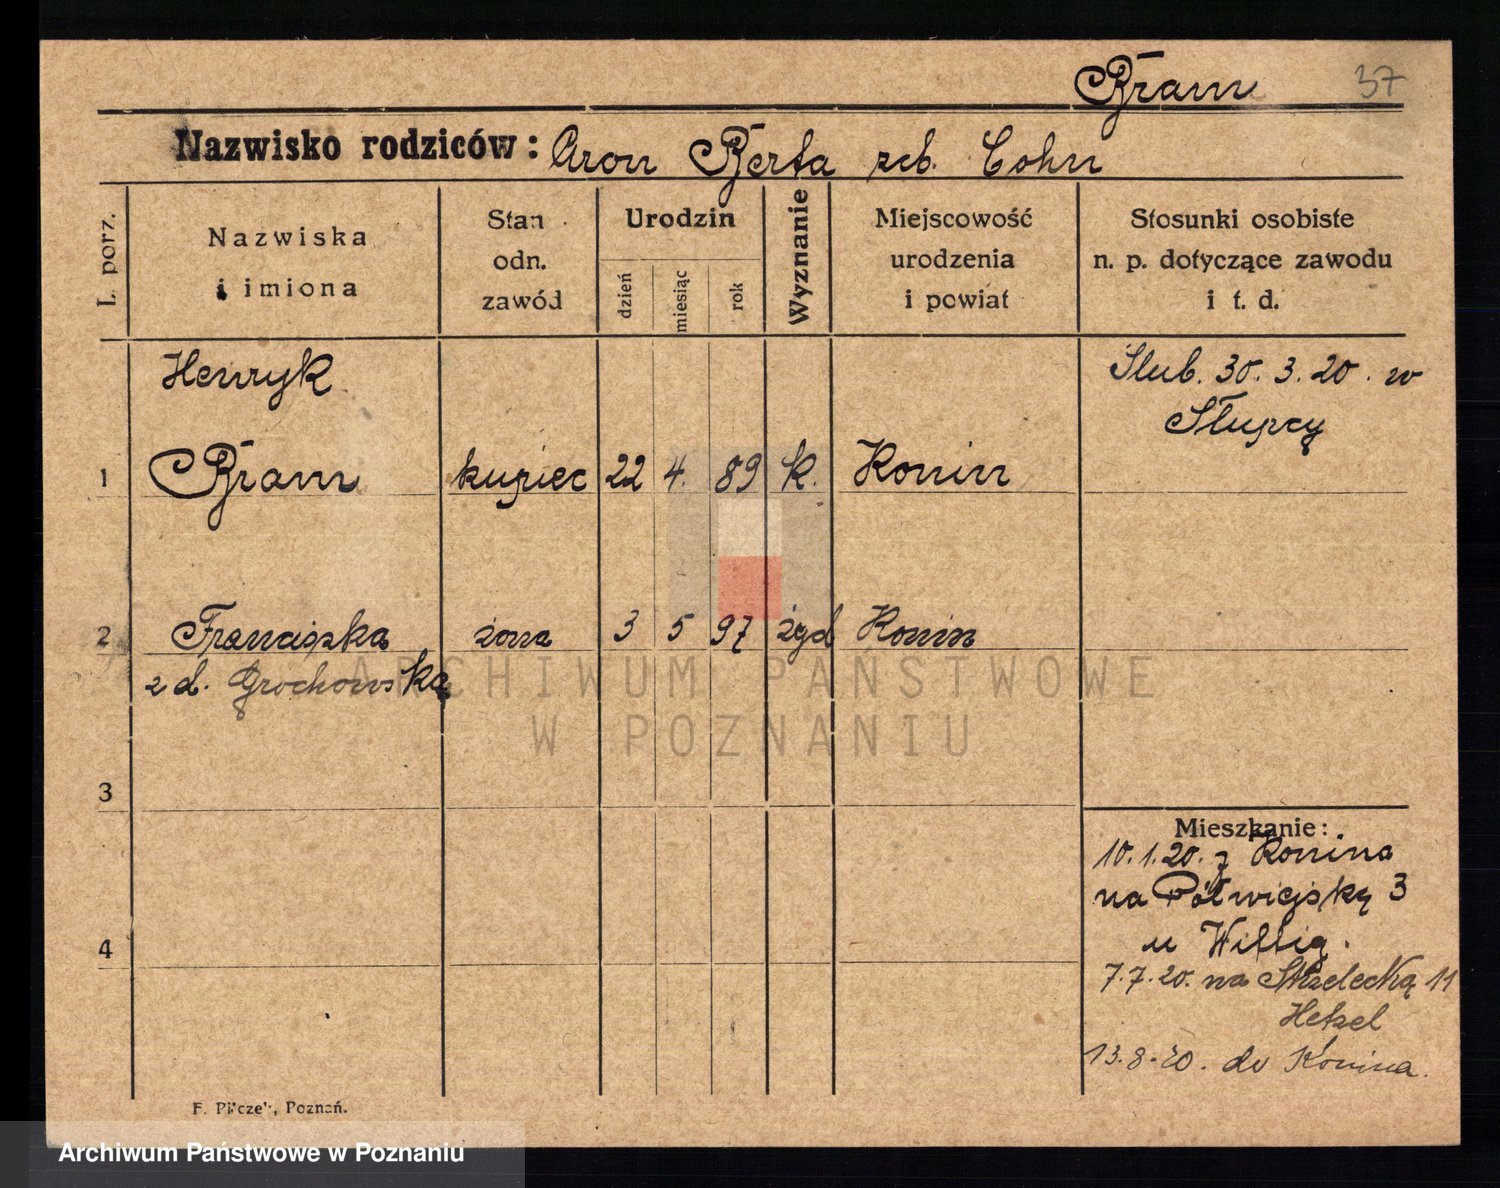 Bram 37
Nazwisko rodziców: Aron Berta zd. Cohn
L. porz.
Nazwiska
i imiona
Stan
odn.
zawód
Urodzin
dzień
miesiąc
rok
Wyznanie
Miejscowość
urodzenia
i powiat
Stosunki osobiste
n. p. dotyczące zawodu
i t. d.
Henryk
Ślub. 30. 3. 20. w
Słupcy
1 Bram kupiec 22 4. 89 k. Konin
2 Franciszka żona 3 5 97 żyd Konin
z d. Grochowska
3
4
Mieszkanie:
10.1.20. z Konina
na Półwiejską 3
u Wittig.
7.7.20. na Strzelecką 11
Hetzel
13.8.20. do Konina.
F. Pilczek, Poznań.
ARCHIWUM PAŃSTWOWE
W POZNANIU
Archiwum Państwowe w Poznaniu